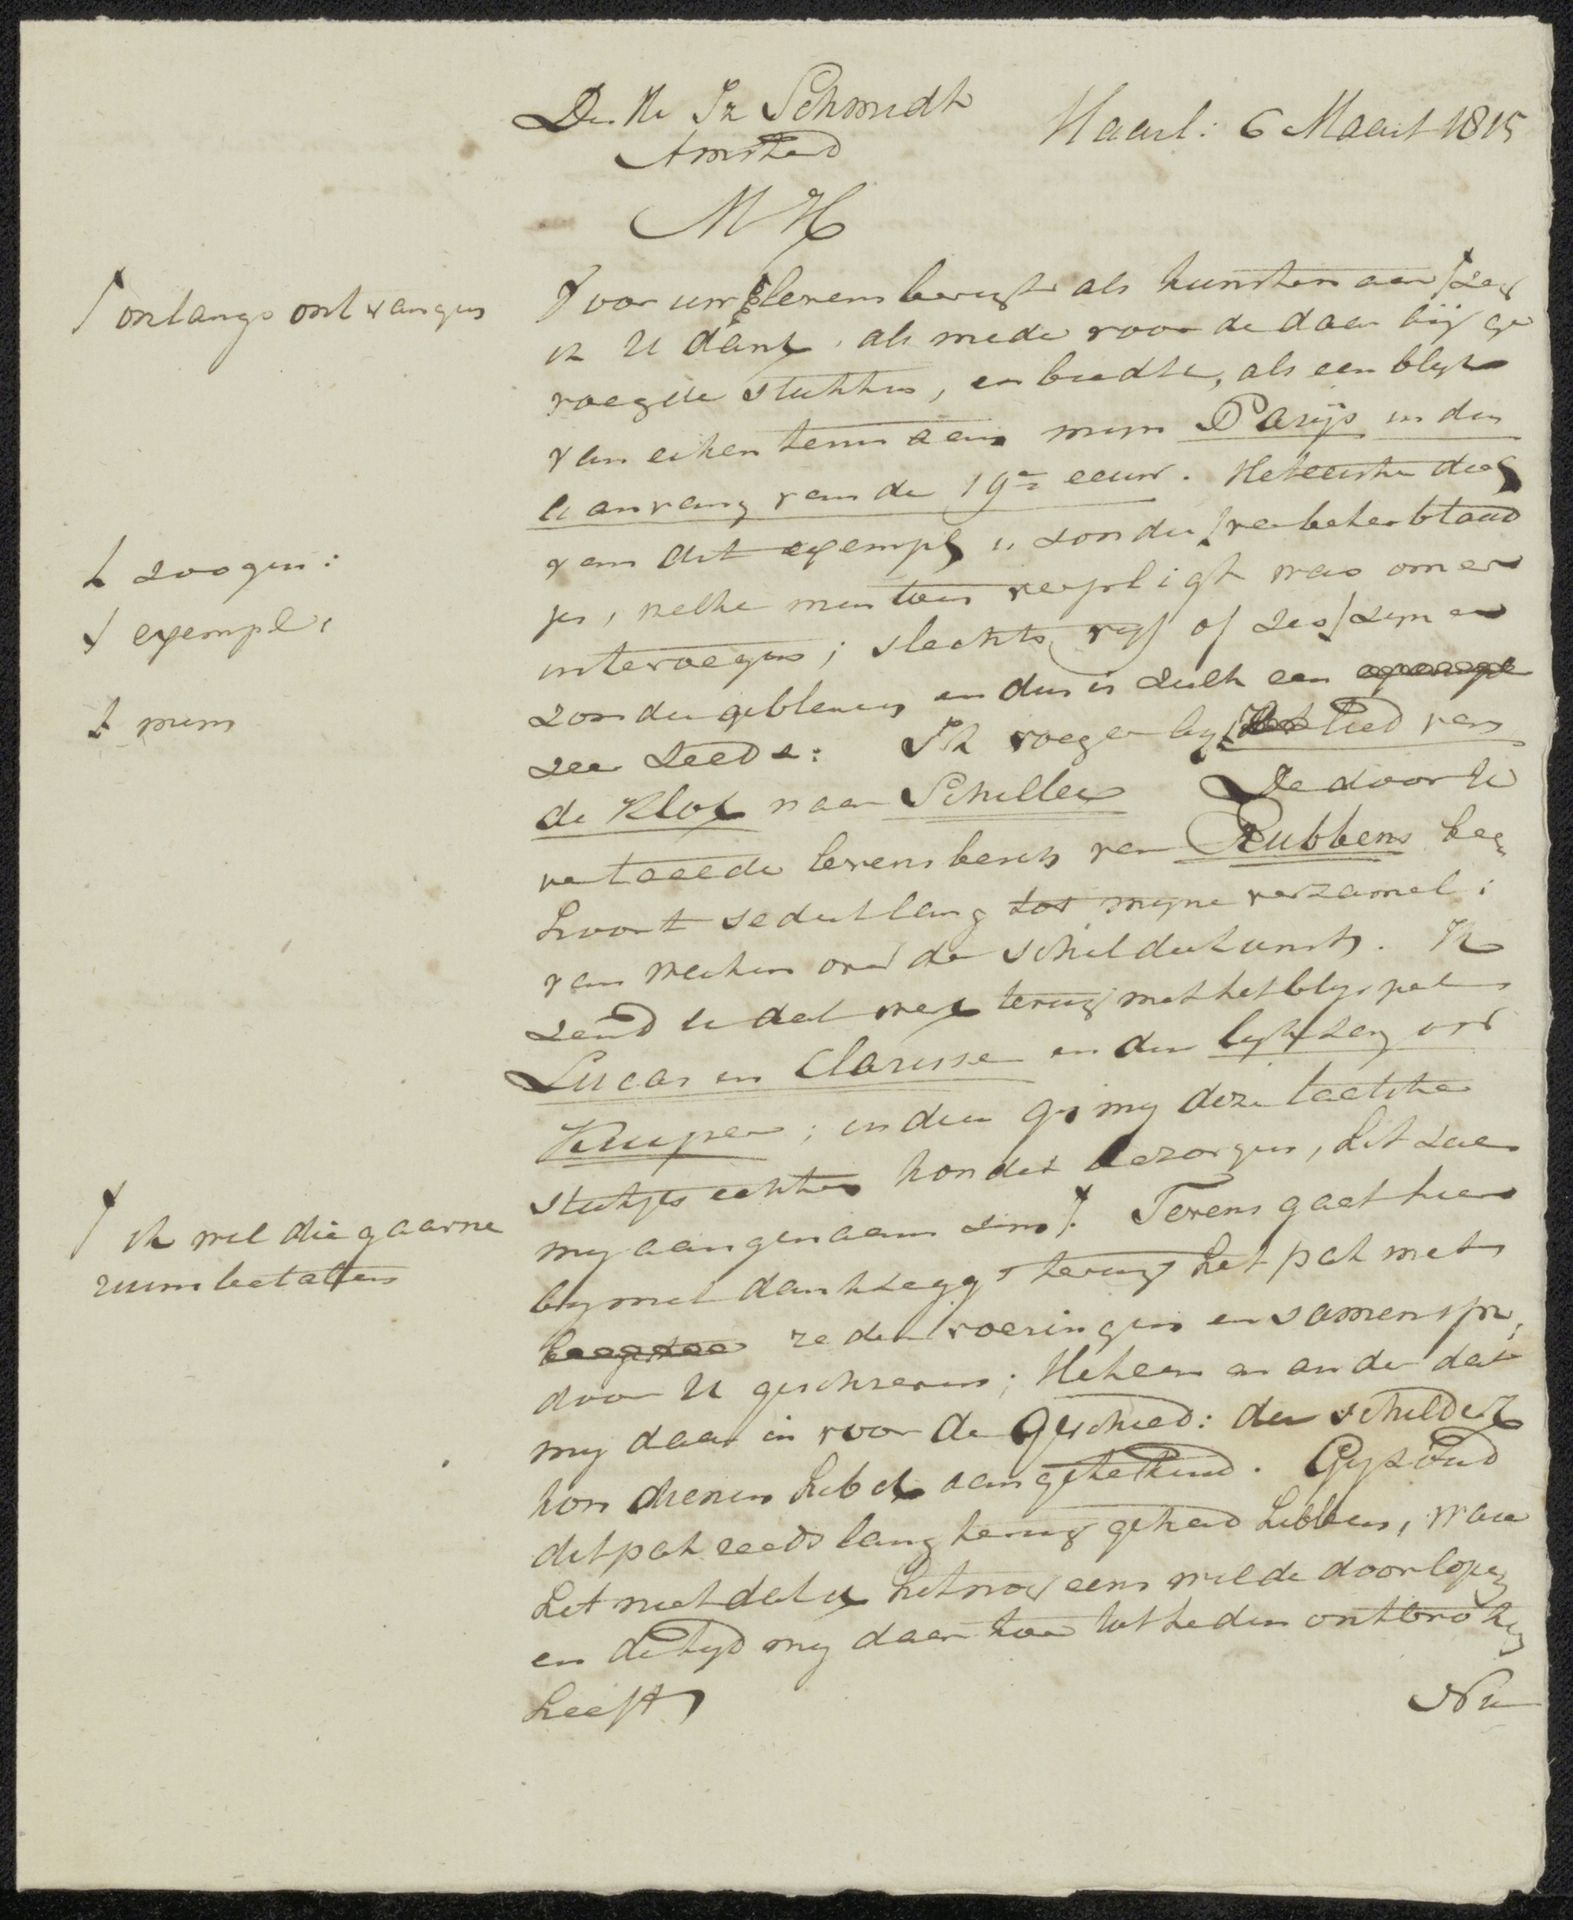 De Hr Iz Schmidt
Amsterd
Haarl: 6 Maart 1815
MH
voor uw levensberigt als kunstenaar zeg
ik U dank, als mede voor de daar bij ge
voegde stukken, en biedt U, als een blyk
van erkentenis aan myn Parijs in den
aanvang van de 19de eeuw. Het eerste deel
van dit exempl is zonder verbeterblaad
jes, welke men toen verpligt was om er
intevoegen; slechts vyf of zes zyn er
zonder gebleven en dus is zulk een
zee zeeds: Ik voege er by Het Lied van
de Klok naar Schiller De door U
vertaalde levensbesch van Rubbens be
hoort sedert lang tot myne verzamel:
van werken over de schilderkunst. Ik
zend U dat werk terug met het blyspel
Lucas en Clarisse en den lykzang over
Kuyper; indien gy my deze laatste
stukjes echter kondet bezorgen, het zou
my aangenaam zyn. Tevens gaat hier
by met dankzegg terug het pak met
redevoeringen en samenspr,
door U geschreven; Het een en ander dat
my daar in voor de Geschied: der schilder
kon dienen heb ik aangetekend. Gy zoud
dit pak reeds lang terug gehad hebben, ware
het niet dat ik het nog eens wilde doorlopen
en de tyd my daar toe tot heden ontbroken
heeft
Nu
onlangs ontvangen
zoogen:
exempl,
mijn
ik wil die gaarne
ruim betalen